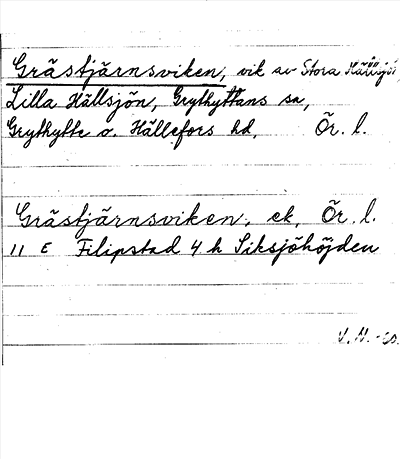 Grästjärnsviken, vik av Stora Hällsjön,
Lilla Hällsjön, Grythyttans sn,
Grythytte o. Hällefors hd, Ör. l.
Grästjärnsviken, ek, Ör. l.
11 E Filipstad 4 h Siksjöhöjden